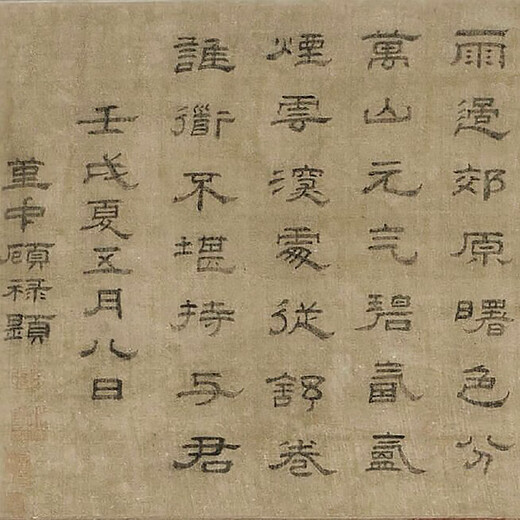 雨過郊原曙色分
萬山元气碧
煙雲深處從舒卷
誰衜不堪持与君
壬戌夏五月八日
堇中頋祿題